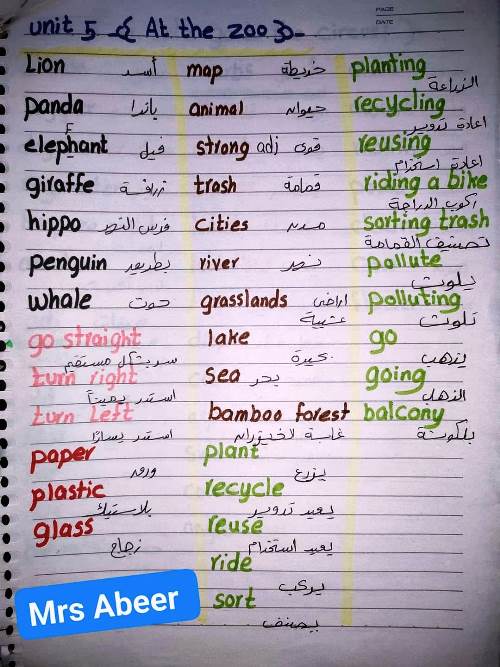 PAGE
DATE
unit 5 { At the zoo }
Lion أسد
panda باندا
elephant فيل
giraffe زرافة
hippo فرس النهر
penguin بطريق
whale حوت
go straight
سر بشكل مستقيم
turn right
استدر يميناً
turn left
استدر يسارًا
paper
ورق
plastic
بلاستيك
glass
زجاج
map خريطة
animal حيوان
strong adj قوى
trash قمامة
cities مدن
river نهر
grasslands اراضى
عشبية
lake
بحيرة
sea بحر
bamboo forest
غابة الخيزران
plant
يزرع
recycle
يعيد تدوير
reuse
يعيد استخدام
ride
يركب
sort
يصنف
planting
الزراعة
recycling
اعادة تدوير
reusing
اعادة استخدام
riding a bike
ركوب الدراجة
sorting trash
تصنيف القمامة
pollute
يلوث
polluting
تلوث
go
يذهب
going
balcony
بلكونة
Mrs Abeer